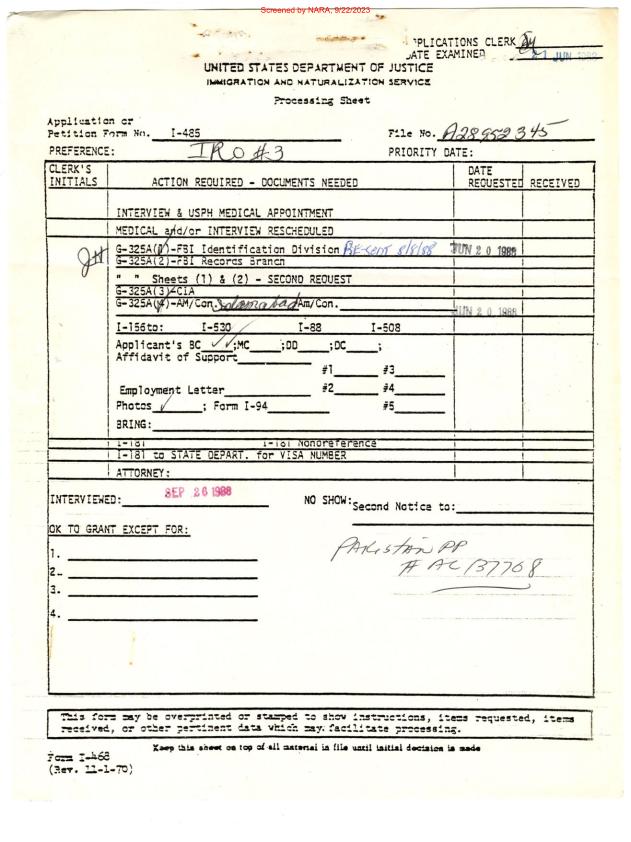 Screened by NARA, 9/22/2023
PLICATIONS CLERK
ATE EXAMINED 21 JUN 1988
UNITED STATES DEPARTMENT OF JUSTICE
IMMIGRATION AND NATURALIZATION SERVICE
Processing Sheet
Application or
Petition Form No. I-485 File No. A28952345
PREFERENCE: IRO #3 PRIORITY DATE:
CLERK'S INITIALS ACTION REQUIRED - DOCUMENTS NEEDED DATE REQUESTED RECEIVED
INTERVIEW & USPH MEDICAL APPOINTMENT
MEDICAL and/or INTERVIEW RESCHEDULED
G-325A(1)-FBI Identification Division Re-sent 8/8/88 JUN 20 1988
G-325A(2)-FBI Records Branch
" " Sheets (1) & (2) - SECOND REQUEST
G-325A(3)-CIA
G-325A(4)-AM/Con Islamabad Am/Con. JUN 20 1988
I-156to: I-530 I-88 I-508
Applicant's BC ✓✓;MC ;DD ;DC ;
Affidavit of Support
#1 #3
Employment Letter #2 #4
Photos ✓ ; Form I-94 #5
BRING:
I-181 I-181 Nonoreference
I-181 to STATE DEPART. for VISA NUMBER
ATTORNEY:
INTERVIEWED: SEP 26 1988 NO SHOW: Second Notice to:
OK TO GRANT EXCEPT FOR:
PAKISTAN PP
# AC 137708
1.
2.
3.
4.
This form may be overprinted or stamped to show instructions, items requested, items
received, or other pertinent data which may facilitate processing.
Keep this sheet on top of all material in file until initial decision is made
Form I-468
(Rev. 11-1-70)